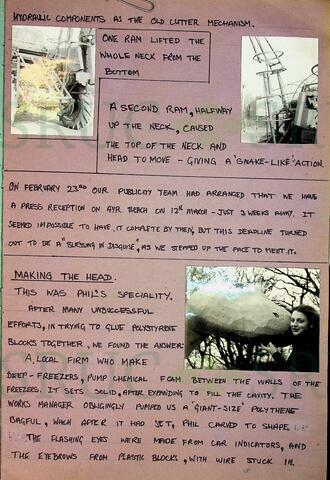 HYDRAULIC COMPONENTS AS THE OLD CUTTER MECHANISM.
ONE RAM LIFTED THE
WHOLE NECK FROM THE
BOTTOM
A SECOND RAM, HALFWAY
UP THE NECK, CAUSED
THE TOP OF THE NECK AND
HEAD TO MOVE - GIVING A 'SNAKE-LIKE' ACTION
ON FEBRUARY 23RD OUR PUBLICITY TEAM HAD ARRANGED THAT WE HAVE
A PRESS RECEPTION ON AYR BEACH ON 17th MARCH - JUST 3 WEEKS AWAY. IT
SEEMED IMPOSSIBLE TO HAVE IT COMPLETE BY THEN, BUT THIS DEADLINE TURNED
OUT TO BE A "BLESSING IN DISGUISE", AS WE STEPPED UP THE PACE TO MEET IT.
MAKING THE HEAD.
THIS WAS PHIL'S SPECIALITY.
AFTER MANY UNSUCCESSFUL
EFFORTS, IN TRYING TO GLUE POLYSTYRENE
BLOCKS TOGETHER, WE FOUND THE ANSWER:
A LOCAL FIRM WHO MAKE
DEEP-FREEZERS, PUMP CHEMICAL FOAM BETWEEN THE WALLS OF THE
FREEZERS. IT SETS SOLID, AFTER EXPANDING TO FILL THE CAVITY. THE
WORKS MANAGER OBLIGINGLY PUMPED US A 'GIANT-SIZE' POLYTHENE
BAGFUL, WHICH AFTER IT HAD SET, PHIL CARVED TO SHAPE.
THE FLASHING EYES WERE MADE FROM CAR INDICATORS, AND
THE EYEBROWS FROM PLASTIC BLOCKS, WITH WIRE STUCK IN.